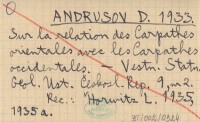 ANDRUSOV D. 1933.
Sur la relation des Carpathes
orientales avec les Carpathes
occidentales. – Vestn. Stát.
Geol. Úst. Českosl. Rep. 9, m2.
Rec.: Horwitz L. 1935,
1935a.